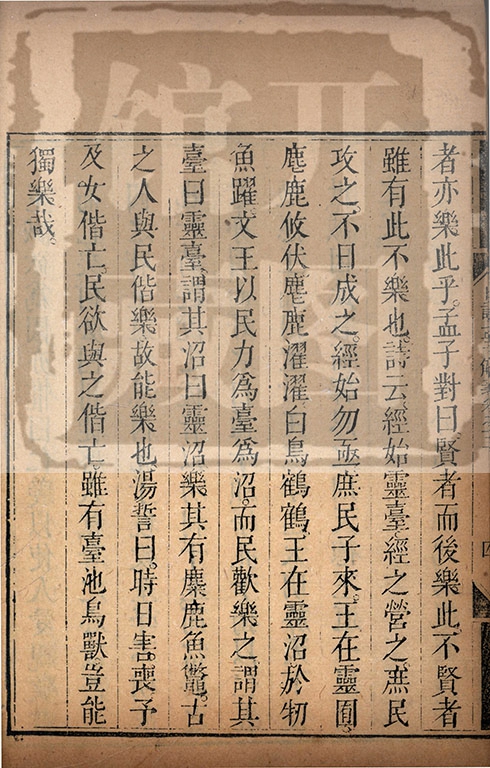 者亦樂此乎。孟子對曰賢者而後樂此、不賢者
雖有此不樂也。詩云經始靈臺。經之營之。庶民
攻之。不日成之。經始勿亟。庶民子來。王在靈囿。
麀鹿攸伏。麀鹿濯濯。白鳥鶴鶴。王在靈沼。於牣
魚躍。文王以民力爲臺爲沼。而民歡樂之。謂其
臺曰靈臺。謂其沼曰靈沼。樂其有麋鹿魚鼈。古
之人與民偕樂。故能樂也。湯誓曰。時日害喪。予
及女偕亡。民欲與之偕亡。雖有臺池鳥獸。豈能
獨樂哉。